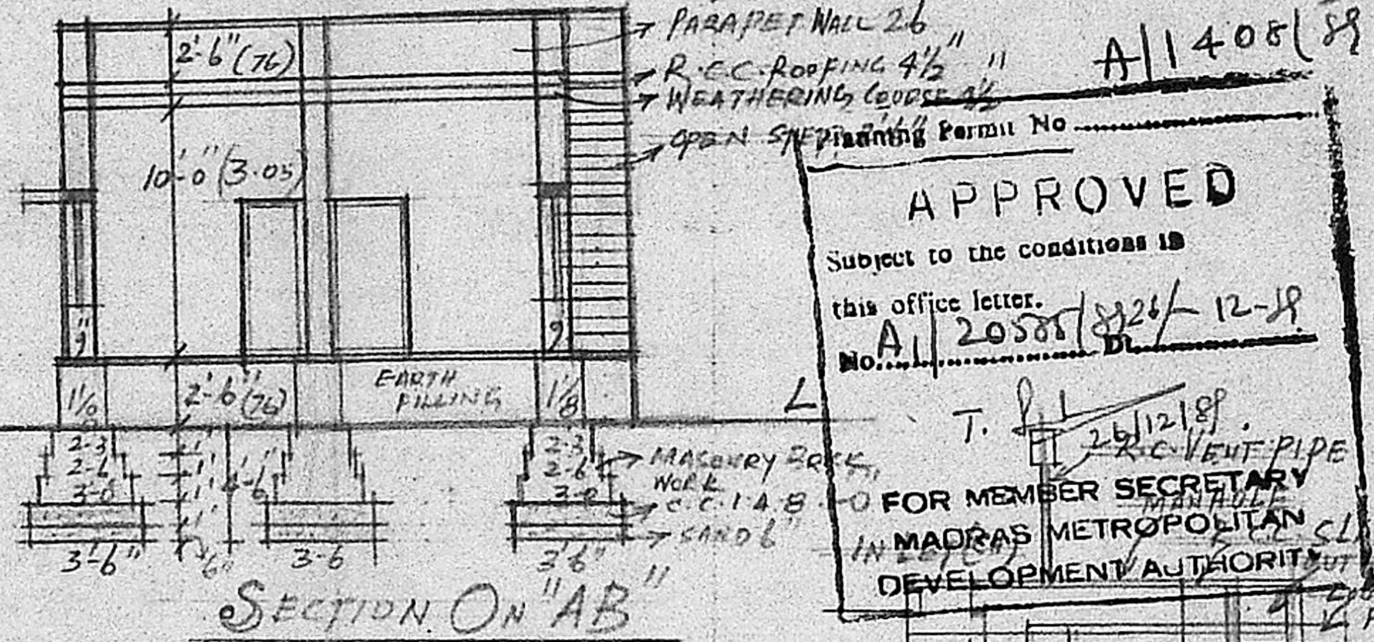 PARAPET WALL 2'6
R.C.C. ROOFING 4½"
WEATHERING COURSE 4½
OPEN
2'-6" (76)
10'-0" (3.05)
9"
9
1'/8
2'-6" (76)
EARTH
FILLING
1'/8
2-3
2-6
3-0
1'
1'
1'
4'-6"
1'
6"
2-3
2-6
3-0
MASONRY BRICK
WORK
C.C. 1.4.8
SAND 6"
3'-6"
3-6
3'6"
SECTION ON "AB"
A/1408/89
Planning Permit No
APPROVED
Subject to the conditions in
this office letter.
No. A1/20585/89 Dt. 26/- 12-89
T.
26/12/89.
R.C. VENT PIPE
FOR MEMBER SECRETARY
MANHOLE
MADRAS METROPOLITAN
DEVELOPMENT AUTHORITY